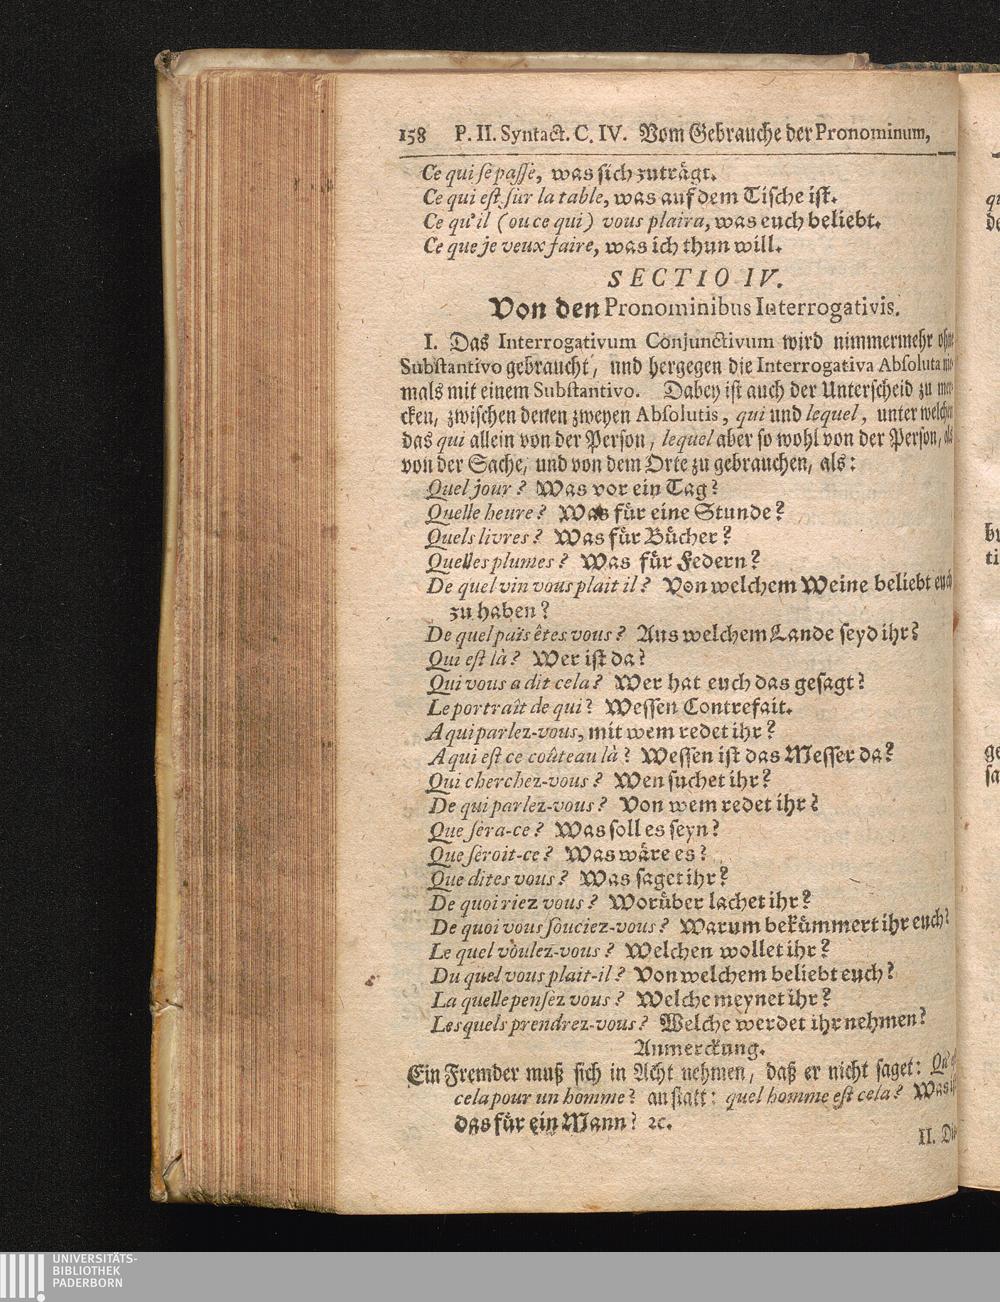 158 P. II. Syntact. C. IV. Vom Gebrauche der Pronominum,
Ce qui se passe, was sich zuträgt.
Ce qui est sur la table, was auf dem Tische ist.
Ce qu'il (ou ce qui) vous plaira, was euch beliebt.
Ce que je veux faire, was ich thun will.
SECTIO IV.
Von den Pronominibus Interrogativis.
I. Das Interrogativum Conjunctivum wird nimmermehr ohne
Substantivo gebraucht, und hergegen die Interrogativa Absoluta nie-
mals mit einem Substantivo. Dabey ist auch der Unterscheid zu mer-
cken, zwischen denen zweyen Absolutis, qui und lequel, unter welchen
das qui allein von der Person, lequel aber so wohl von der Person, als
von der Sache, und von dem Orte zu gebrauchen, als:
Quel jour? Was vor ein Tag?
Quelle heure? Was für eine Stunde?
Quels livres? Was für Bücher?
Quelles plumes? Was für Federn?
De quel vin vous plait il? Von welchem Weine beliebt euch
zu haben?
De quel païs êtes vous? Aus welchem Lande seyd ihr?
Qui est là? Wer ist da?
Qui vous a dit cela? Wer hat euch das gesagt?
Le portrait de qui? Wessen Contrefait.
A qui parlez-vous, mit wem redet ihr?
A qui est ce coûteau là? Wessen ist das Messer da?
Qui cherchez-vous? Wen suchet ihr?
De qui parlez-vous? Von wem redet ihr?
Que sera-ce? Was soll es seyn?
Que seroit-ce? Was wäre es?
Que dites vous? Was saget ihr?
De quoi riez vous? Worüber lachet ihr?
De quoi vous souciez-vous? Warum bekümmert ihr euch?
Le quel voulez-vous? Welchen wollet ihr?
Du quel vous plait-il? Von welchem beliebt euch?
La quelle pensez vous? Welche meynet ihr?
Les quels prendrez-vous? Welche werdet ihr nehmen?
Anmerckung.
Ein Fremder muß sich in Acht nehmen, daß er nicht saget:
cela pour un homme? anstatt: quel homme est cela? Was
das für ein Mann? ꝛc.
II. Die
UNIVERSITÄTS-
BIBLIOTHEK
PADERBORN